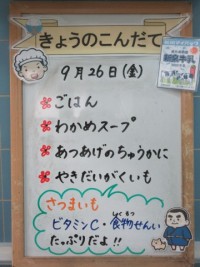 きょうのこんだて
9月26日(金)
ごはん
わかめスープ
あつあげのちゅうかに
やきだいがくいも
さつまいも
ビタミンC・食物せんい
しょくもつ
たっぷりだよ!!